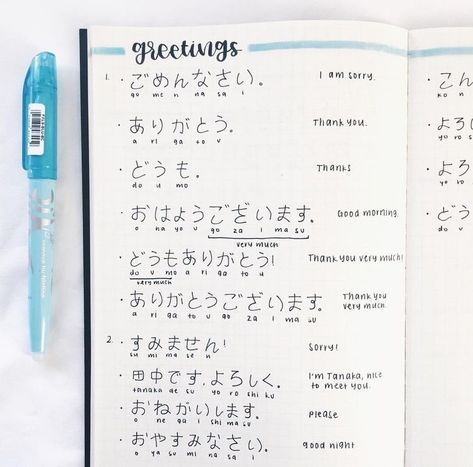 greetings
1. ・ごめんなさい。 I am sorry.
go me n na sa i
・ありがとう。 Thank you.
a ri ga to u
・どうも。 Thanks
do u mo
・おはようございます。 Good morning.
o ha yo u go za i ma su
very much
・どうもありがとう! Thank you very much!
do u mo a ri ga to u
very much
・ありがとうございます。 Thank you
very much.
a ri ga to u go za i ma su
2. ・すみません! Sorry!
su mi ma se n
・田中です,よろしく。 I'm Tanaka, nice
to meet you.
tanaka de su yo ro shi ku
・おねがいします。 please
o ne ga i shi ma su
・おやすみなさい。 good night
o ya su mi na sa i
・こん
・よろし
yo ro s
・よろ
yo ro
・どう
do u